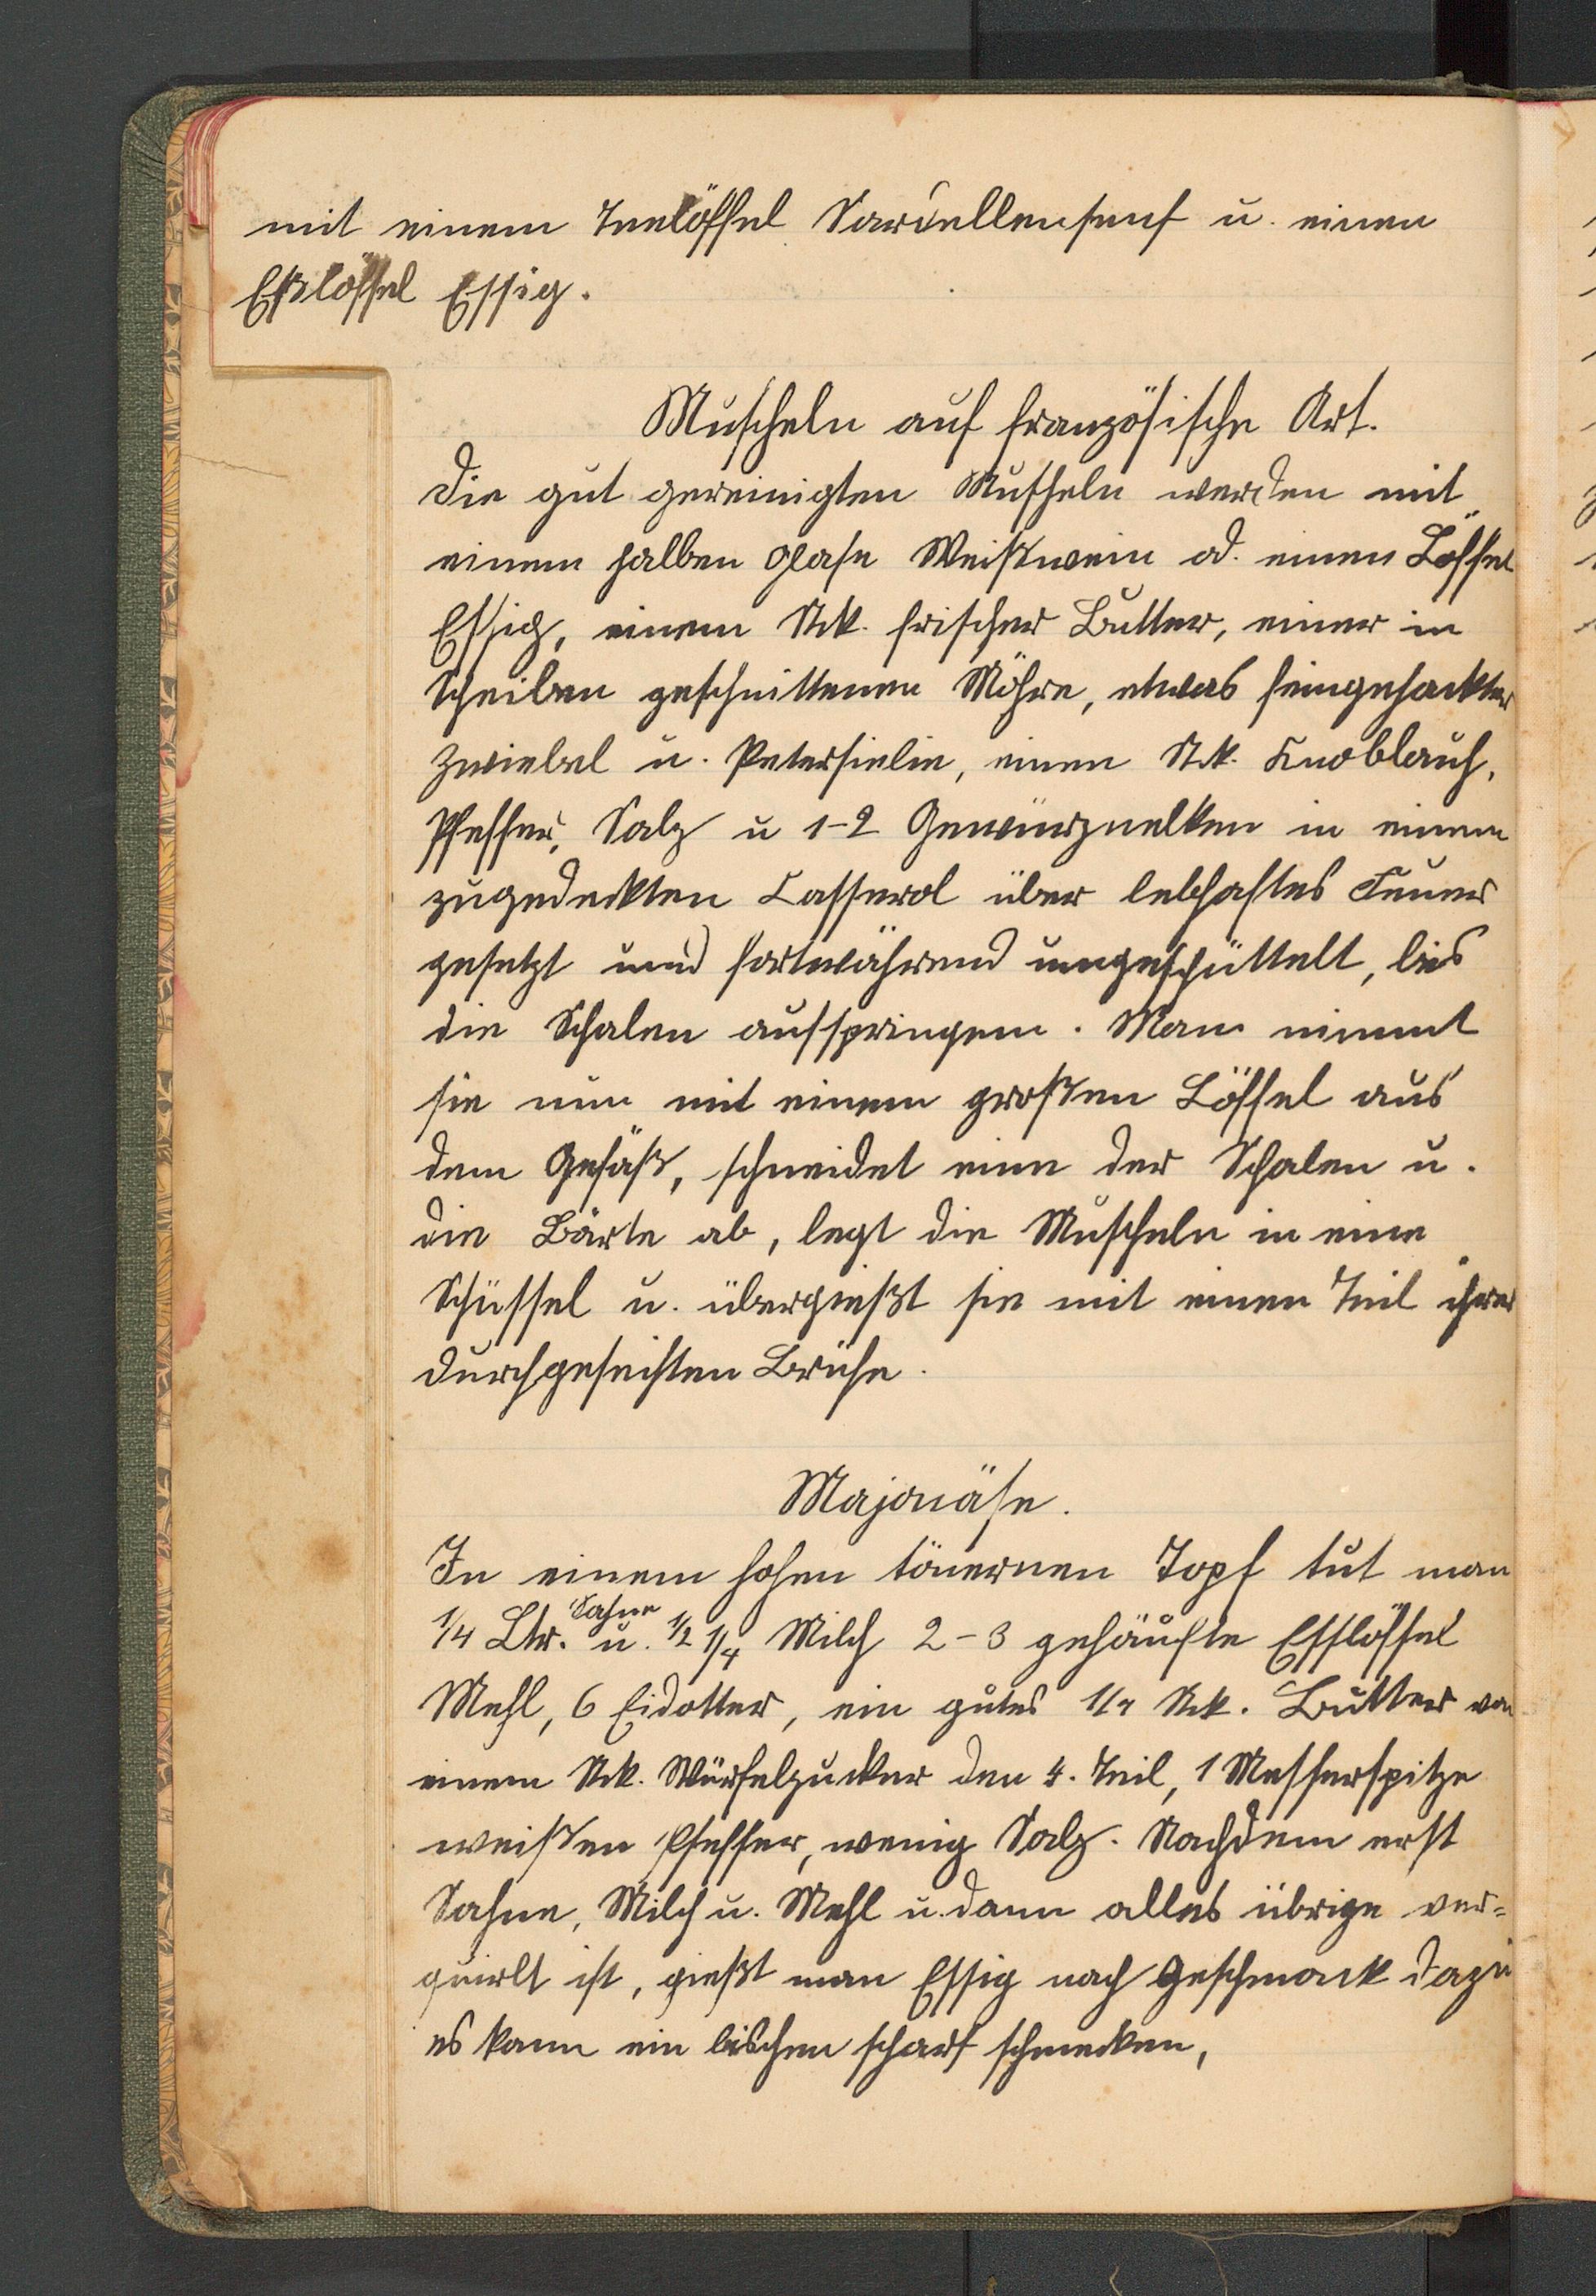 mit einem Teelöffel Sardellensenf u. einen
Eßlöffel Essig.
Muscheln auf französische Art.
Die gut gereinigten Muscheln werden mit
einem halben Glase Weißwein od. einen Löffel
Essig, einem Stk. frischer Butter, einer in
Scheiben geschnittenen Möhre, etwas feingehackter
Zwiebel u. Petersielie, einen Stk. Knoblauch,
Pfeffer, Salz u 1-2 Gewürznelken in einem
zugedeckten Casserol über lebhaftes Feuer
gesetzt und fortwährend umgeschüttelt, bis
die Schalen aufspringen. Man nimmt
sie nun mit einem großen Löffel aus
dem Gefäß, schneidet eine der Schalen u.
die Bärte ab, legt die Muscheln in eine
Schüssel u. übergießt sie mit einen Teil ihrer
durchgeseihten Brühe.
Majonäse.
In einem hohen tönernen Topf tut man
1/4 Ltr. Sahne u. 1/2 1/4 Milch 2-3 gehäufte Esslöffel
Mehl, 6 Eidotter, ein gutes Stk. Butter von
einem Stk. Würfelzucker den 4. Teil, 1 Messerspitze
weißen Pfeffer, wenig Salz. Nachdem erst
Sahne, Milch u. Mehl u. dann alles übrige ver=
quirlt ist, gießt man Essig nach Geschmack dazu
es kann ein bischen scharf schmecken,